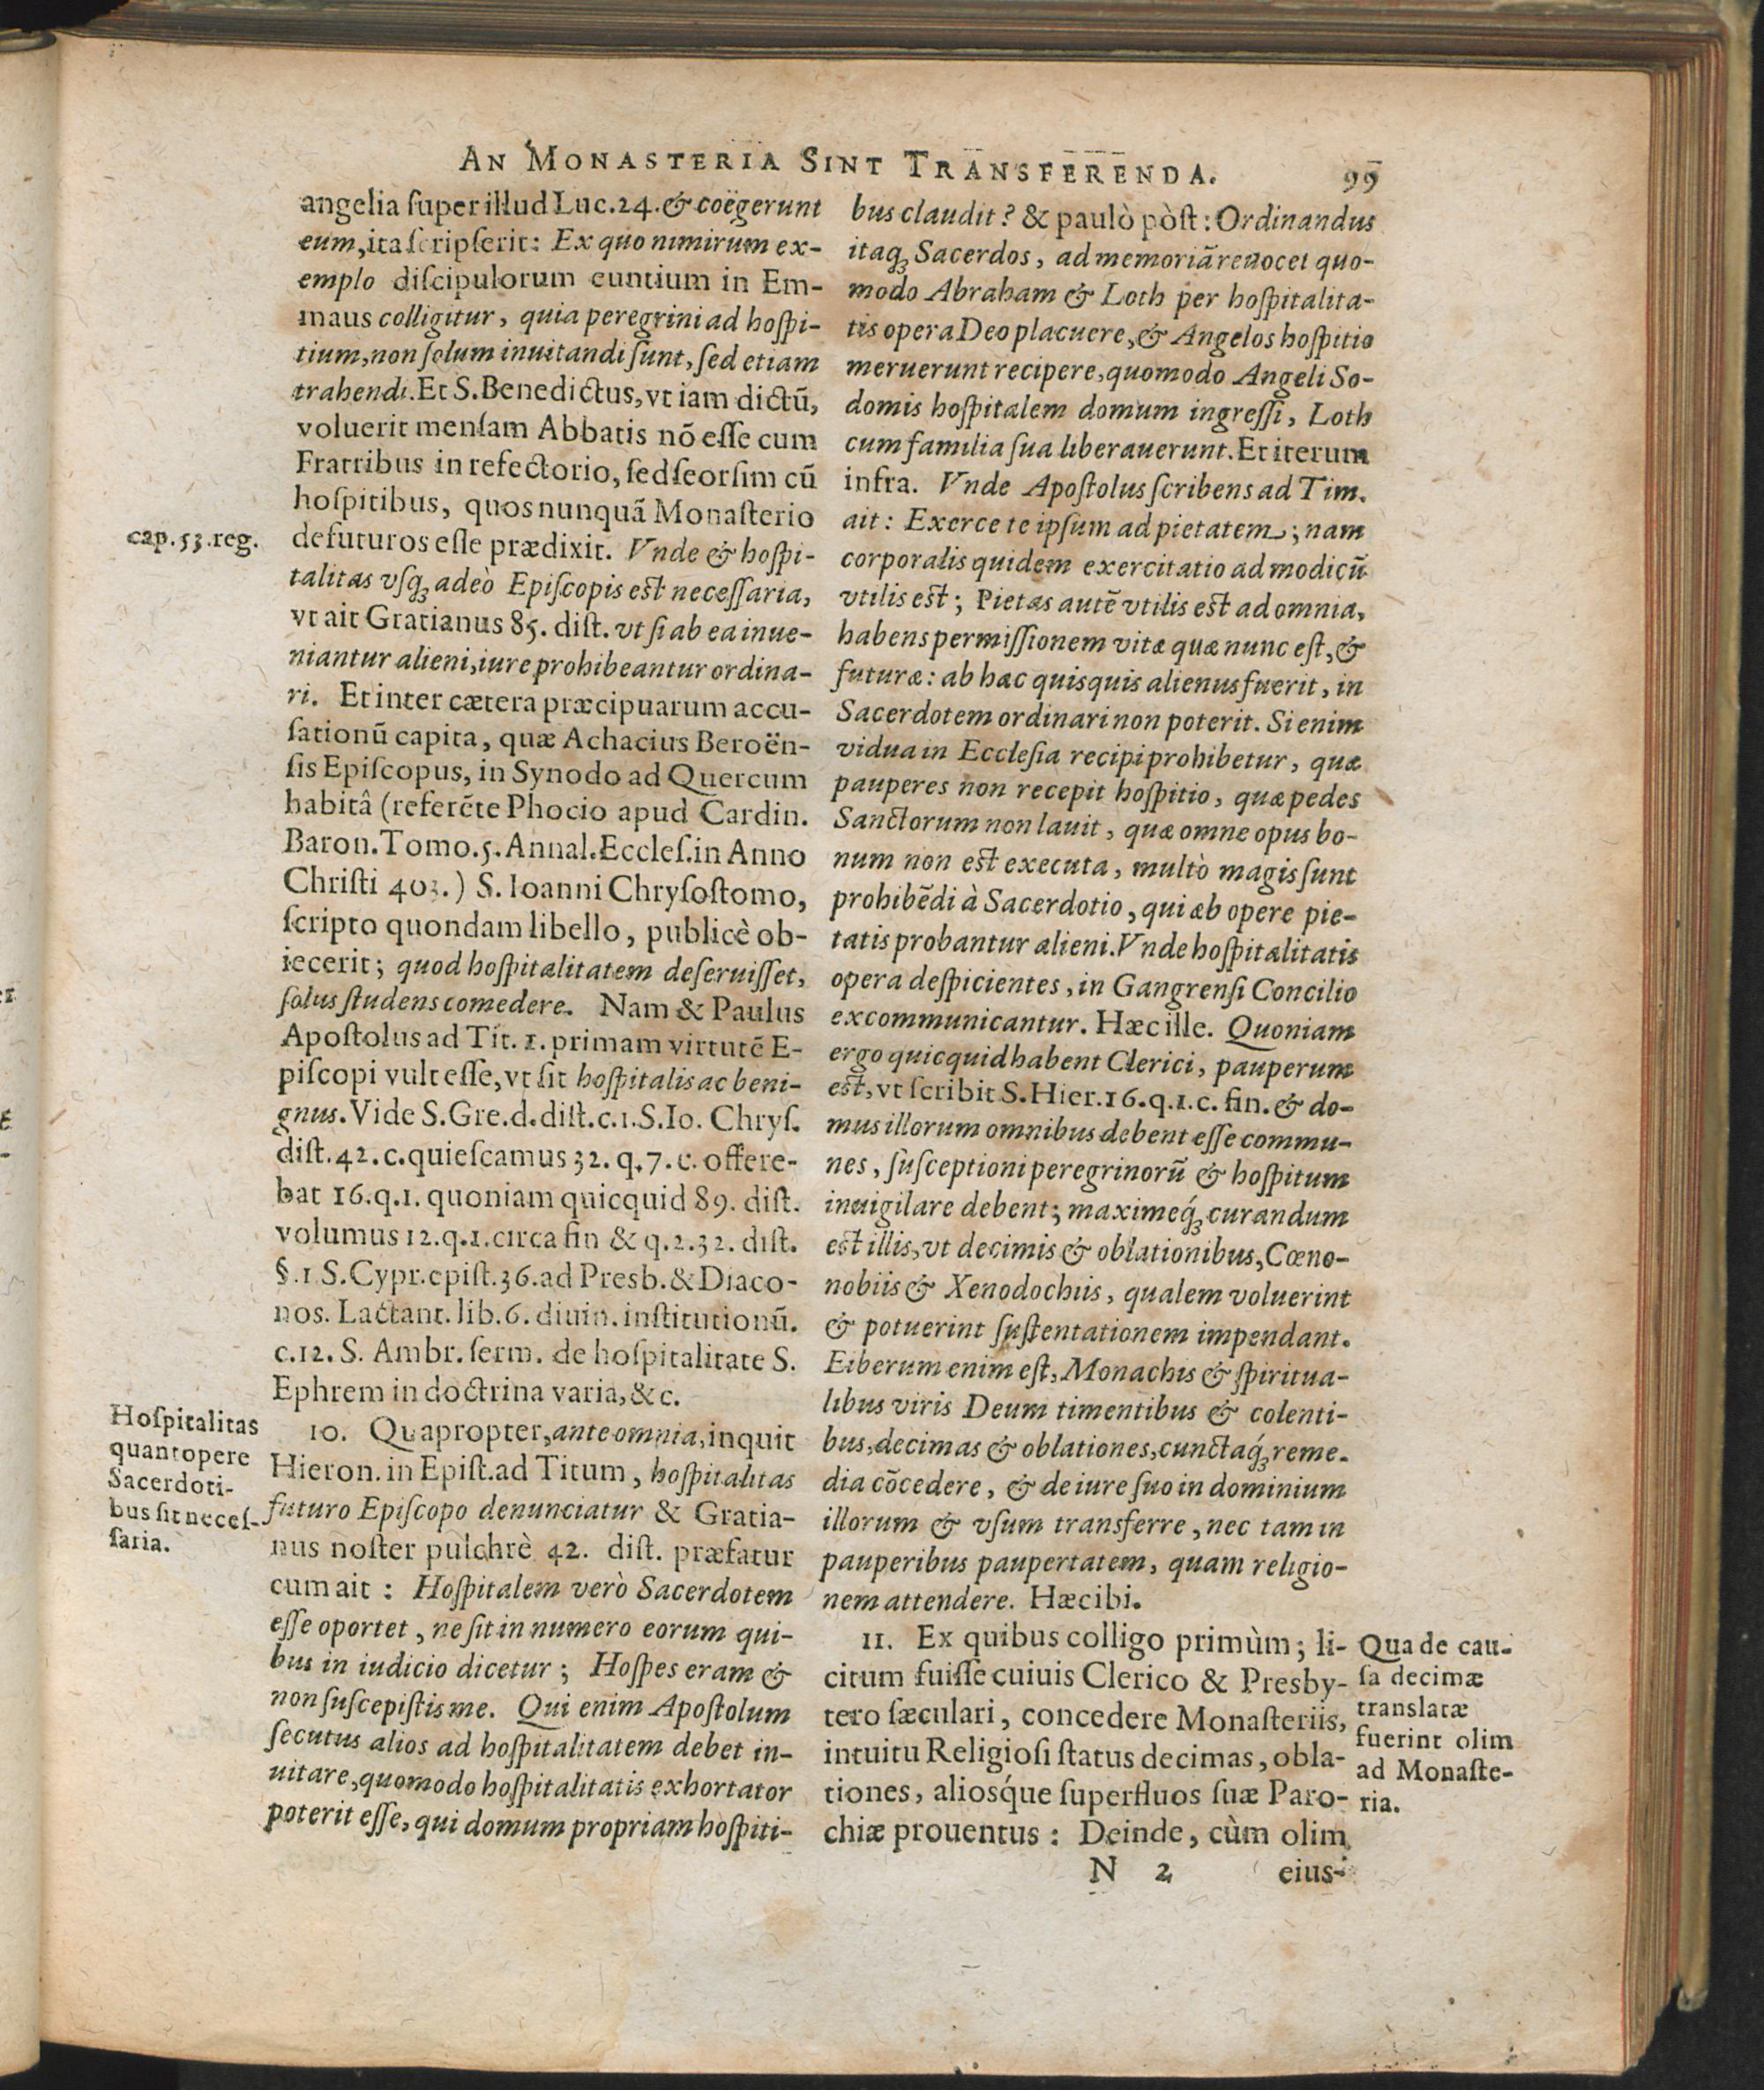 AN MONASTERIA SINT TRANSFERENDA. 99
angelia ſuper illud Luc.24. & coëgerunt
eum, ita ſcripſerit: Ex quo nimirum ex-
emplo diſcipulorum euntium in Em-
maus colligitur, quia peregrini ad hoſpi-
tium, non ſolum inuitandi ſunt, ſed etiam
trahendi. Et S. Benedictus, vt iam dictũ,
voluerit menſam Abbatis nõ eſſe cum
Fratribus in refectorio, ſed ſeorſim cũ
hoſpitibus, quos nunquã Monaſterio
cap. 53. reg.
defuturos eſſe prædixit. Vnde & hoſpi-
talitas vſq́; adeò Epiſcopis est neceſſaria,
vt ait Gratianus 85. diſt. vt ſi ab ea inue-
niantur alieni, iure prohibeantur ordina-
ri. Et inter cætera præcipuarum accu-
ſationũ capita, quæ Achacius Beroën-
ſis Epiſcopus, in Synodo ad Quercum
habitâ (referẽte Phocio apud Cardin.
Baron. Tomo. 5. Annal. Eccleſ. in Anno
Chriſti 403.) S. Ioanni Chryſoſtomo,
ſcripto quondam libello, publicè ob-
iecerit; quod hoſpitalitatem deſeruiſſet,
ſolus ſtudens comedere. Nam & Paulus
Apoſtolus ad Tit. 1. primam virtutẽ E-
piſcopi vult eſſe, vt ſit hoſpitalis ac beni-
gnus. Vide S. Gre. d. diſt. c. 1. S. Io. Chryſ.
diſt. 42. c. quieſcamus 32. q. 7. c. offere-
bat 16. q. 1. quoniam quicquid 89. diſt.
volumus 12. q. 1. circa fin & q. 2. 32. diſt.
§. 1 S. Cypr. epiſt. 36. ad Presb. & Diaco-
nos. Lactant. lib. 6. diuin. inſtitutionũ.
c. 12. S. Ambr. ſerm. de hoſpitalitate S.
Ephrem in doctrina varia, &c.
Hoſpitalitas
quantopere
Sacerdoti-
bus ſit neceſ-
ſaria.
10. Quapropter, ante omnia, inquit
Hieron. in Epiſt. ad Titum, hoſpitalitas
futuro Epiſcopo denunciatur & Gratia-
nus noſter pulchrè 42. diſt. præfatur
cum ait: Hoſpitalem verò Sacerdotem
eſſe oportet, ne ſit in numero eorum qui-
bus in iudicio dicetur; Hoſpes eram &
non ſuſcepiſtis me. Qui enim Apoſtolum
ſecutus alios ad hoſpitalitatem debet in-
uitare, quomodo hoſpitalitatis exhortator
poterit eſſe, qui domum propriam hoſpiti-
bus claudit? & paulò pòſt: Ordinandus
itaq; Sacerdos, ad memoriã reuocet quo-
modo Abraham & Loth per hoſpitalita-
tis opera Deo placuere, & Angelos hoſpitio
meruerunt recipere, quomodo Angeli So-
domis hoſpitalem domum ingreſſi, Loth
cum familia ſua liberauerunt. Et iterum
infra. Vnde Apoſtolus ſcribens ad Tim.
ait: Exerce te ipſum ad pietatem; nam
corporalis quidem exercitatio ad modicũ
vtilis est; Pietas autẽ vtilis est ad omnia,
habens permiſſionem vitæ quæ nunc eſt, &
futuræ: ab hac quisquis alienus fuerit, in
Sacerdotem ordinari non poterit. Si enim
vidua in Eccleſia recipi prohibetur, quæ
pauperes non recepit hoſpitio, quæ pedes
Sanctorum non lauit, quæ omne opus bo-
num non est executa, multò magis ſunt
prohibẽdi à Sacerdotio, qui ab opere pie-
tatis probantur alieni. Vnde hoſpitalitatis
opera deſpicientes, in Gangrenſi Concilio
excommunicantur. Hæc ille. Quoniam
ergo quicquid habent Clerici, pauperum
est, vt ſcribit S. Hier. 16. q. 1. c. fin. & do-
mus illorum omnibus debent eſſe commu-
nes, ſuſceptioni peregrinorũ & hoſpitum
inuigilare debent; maximeq́; curandum
est illis, vt decimis & oblationibus, Cœno-
nobiis & Xenodochiis, qualem voluerint
& potuerint ſuſtentationem impendant.
Eiberum enim eſt, Monachis & ſpiritua-
libus viris Deum timentibus & colenti-
bus, decimas & oblationes, cunctaq́; reme-
dia cõcedere, & de iure ſuo in dominium
illorum & vſum transferre, nec tam in
pauperibus paupertatem, quam religio-
nem attendere. Hæc ibi.
11. Ex quibus colligo primùm; li-
citum fuiſſe cuiuis Clerico & Presby-
tero ſæculari, concedere Monaſteriis,
intuitu Religioſi ſtatus decimas, obla-
tiones, alioſq́ue ſuperfluos ſuæ Paro-
chiæ prouentus: Deinde, cùm olim
Qua de cau-
ſa decimæ
translatæ
fuerint olim
ad Monaſte-
ria.
N 2 eius-